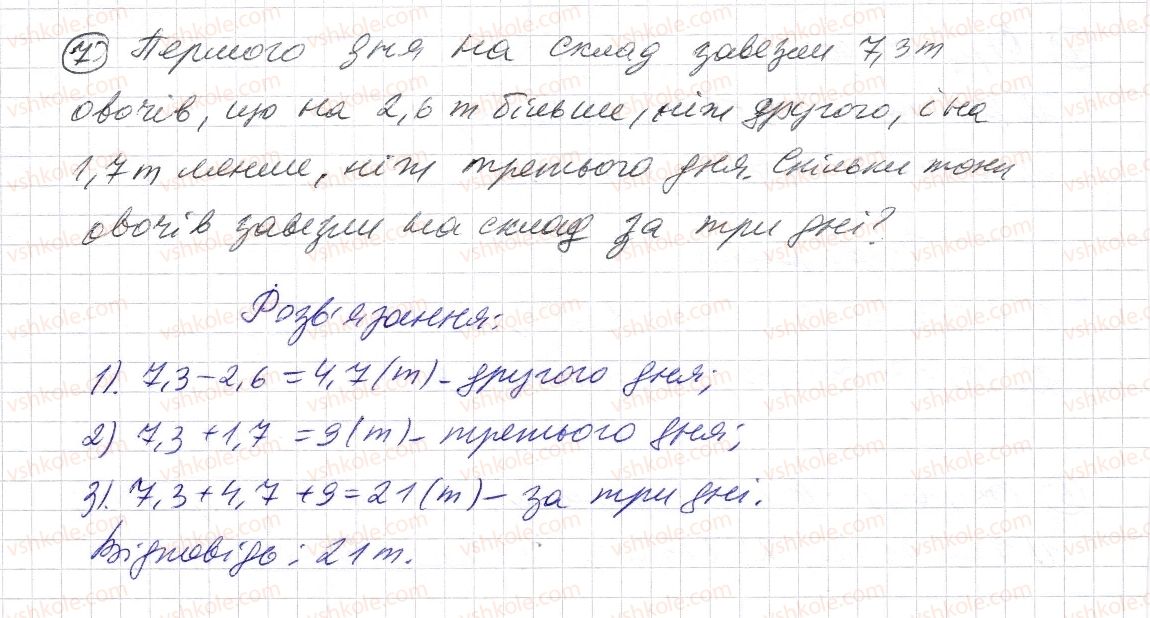 7) Першого дня на склад завезли 7,3 т
овочів, що на 2,6 т більше, ніж другого, і на
1,7 т менше, ніж третього дня. Скільки тонн
овочів завезли на склад за три дні?
Розв'язання:
1). 7,3 - 2,6 = 4,7 (т) - другого дня;
2) 7,3 + 1,7 = 9 (т) - третього дня;
3). 7,3 + 4,7 + 9 = 21 (т) - за три дні.
Відповідь: 21 т.